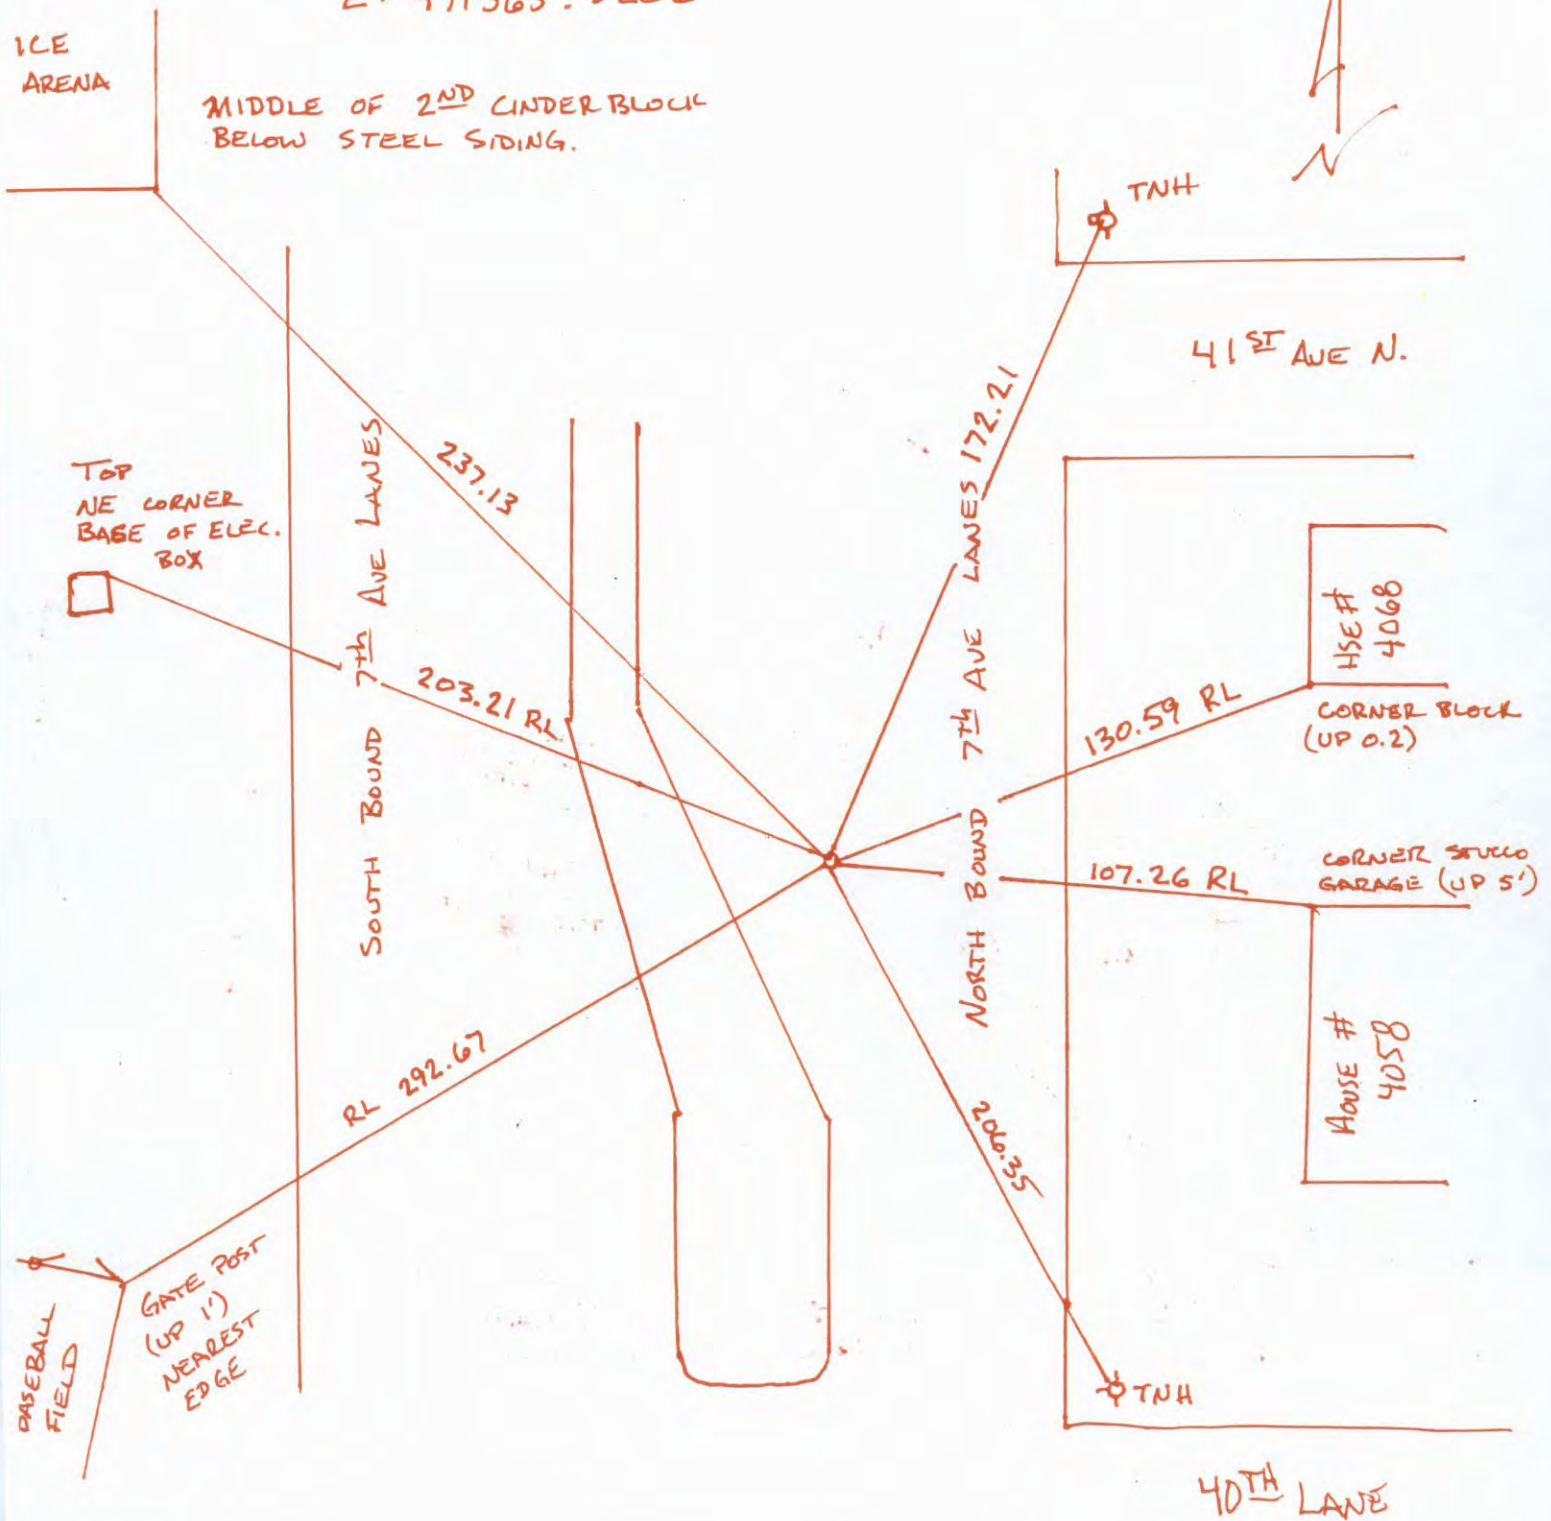 ICE
ARENA
MIDDLE OF 2ND CINDER BLOCK
BELOW STEEL SIDING.
N
TNH
41ST AVE N.
172.21
237.13
TOP
NE CORNER
BASE OF ELEC.
BOX
SOUTH BOUND 7th AVE LANES
NORTH BOUND 7th AVE LANES
203.21 RL
130.59 RL
HSE #
4068
CORNER BLOCK
(UP 0.2)
107.26 RL
CORNER STUCCO
GARAGE (UP 5')
RL 292.67
HOUSE #
4058
206.35
GATE POST
(UP 1')
NEAREST
EDGE
BASEBALL
FIELD
TNH
40TH LANE